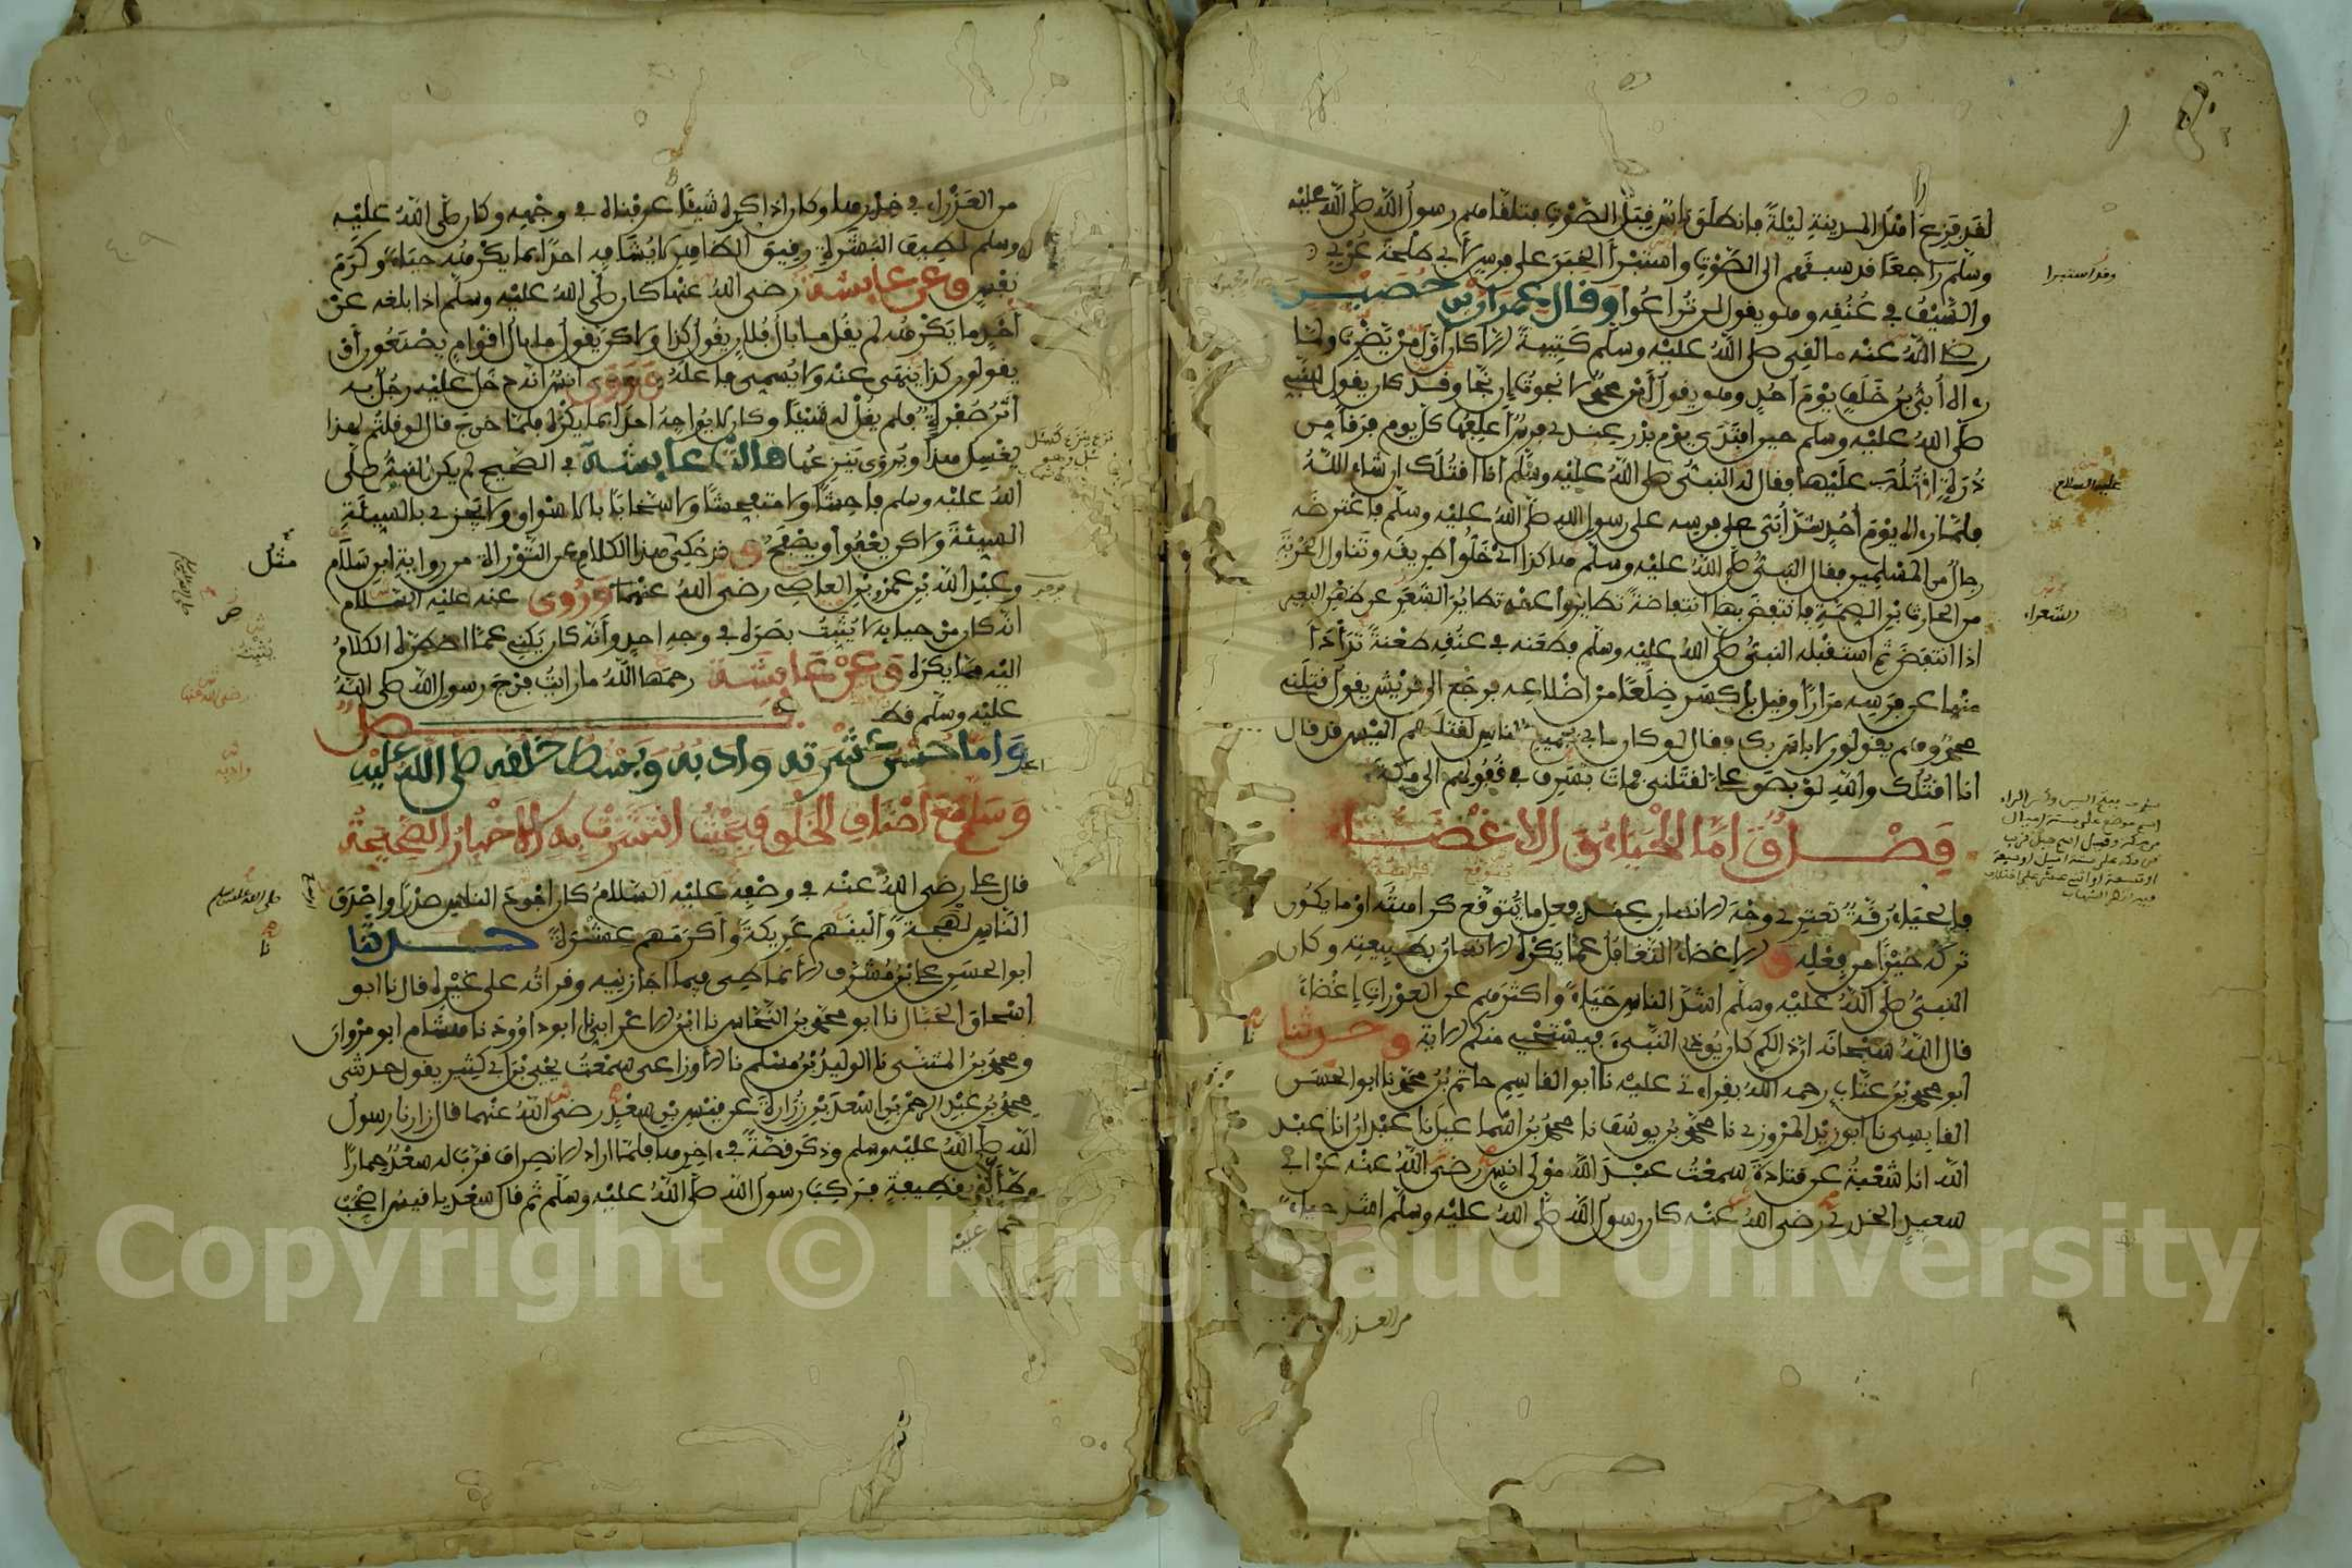 لقد فزع أهل المدينة ليلة فانطلق ناس قبل الصوت فتلقاهم رسول الله صلى الله عليه
وسلم راجعا قد سبقهم الى الصوت واستبرأ الخبر على فرس لأبي طلحة عري
والسيف في عنقه وهو يقول لن تراعوا وقال عمران بن حصين
رضي الله عنه ما لقي صلى الله عليه وسلم كتيبة الا كان أول من يضرب ولما
رءاه أبي بن خلف يوم أحد وهو يقول أين محمد لا نجوت إن نجا وقد كان يقول للنبي
صلى الله عليه وسلم حين افتدى يوم بدر عندي فرس أعلفها كل يوم فرقا من
ذرة اقتلك عليها فقال له النبي صلى الله عليه وسلم أنا اقتلك ان شاء الله
فلما رءاه يوم أحد شد أبي على فرسه على رسول الله صلى الله عليه وسلم فاعترضه
رجال من المسلمين فقال النبي صلى الله عليه وسلم هاكذا اي خلوا طريقه وتناول الحربة
من الحارث بن الصمة فانتفض بها انتفاضة تطايروا عنه تطاير الشعر عن ظهر البعير
اذا انتفض ثم استقبله النبي صلى الله عليه وسلم فطعنه في عنقه طعنة تدأدأ
منها عن فرسه مرارا وقيل بل كسر ضلعا من اضلاعه فرجع الى قريش يقول قتلني
محمد وهم يقولون لا باس بك فقال لو كان ما بي بجميع الناس لقتلهم اليس قد قال
انا اقتلك والله لو بصق علي لقتلني فمات بسرف في قفولهم الى مكة
فصل وأما الحياء والاغضاء
فالحياء رقة تعتري وجه الانسان عند فعل ما يتوقع كراهته او ما يكون
تركه خيرا من فعله والاغضاء التغافل عما يكره الانسان بطبيعته وكان
النبي صلى الله عليه وسلم اشد الناس حياء واكثرهم عن العورات إغضاء
قال الله سبحانه ان ذالكم كان يوذي النبيء فيستحي منكم الاية وحدثنا
ابو محمد بن عتاب رحمه الله بقراءتي عليه نا ابو القاسم حاتم بن محمد نا ابو الحسن
القابسي نا ابو زيد المروزي نا محمد بن يوسف نا محمد بن اسماعيل نا عبدان انا عبد
الله انا شعبة عن قتادة سمعت عبد الله مولى انس رضي الله عنه عن ابي
سعيد الخدري رضي الله عنه كان رسول الله صلى الله عليه وسلم اشد حياء
من العذراء
وقد استبرا
عليه السلام
الشعراء
من العذراء في خدرها وكان اذا كره شيئا عرفناه في وجهه وكان صلى الله عليه
وسلم لطيف البشرة رقيق الظاهر لا يشافه احدا بما يكرهه حياء وكرم
نفس وعن عايشة رضي الله عنها كان صلى الله عليه وسلم اذا بلغه عن
أحد ما يكرهه لم يقل ما بال فلان يقول كذا ولاكن يقول ما بال اقوام يصنعون أو
يقولون كذا ينهى عنه ولا يسمي فاعله وروى انس انه دخل عليه رجل به
اثر صفرة فلم يقل له شيئا وكان لا يواجه احدا بما يكره فلما خرج قال لو قلتم لهذا
يغسل هذا ويروى ينزعها قالت عايشة في الصحيح لم يكن النبي صلى
الله عليه وسلم فاحشا ولا متفحشا ولا سخابا بالاسواق ولا يجزي بالسيئة
السيئة ولاكن يعفوا ويصفح وقد حكي هذا الكلام عن التوراة من رواية ابن سلام
وعبد الله بن عمرو بن العاصي رضي الله عنهما وروي عنه عليه السلام
انه كان من حيايه لا يثبت بصره في وجه احد وأنه كان يكني عما اضطره الكلام
اليه مما يكره وعن عايشة رحمها الله ما رايت فرج رسول الله صلى الله
عليه وسلم قط فصل
وأما حسن عشرته وادبه وبسط خلقه صلى الله عليه
وسلم مع أصناف الخلق فبحيث انتشرت به الأخبار الصحيحة
قال علي رضي الله عنه في وصفه عليه السلام كان اجود الناس صدرا واصدق
الناس لهجة وألينهم عريكة وأكرمهم عشرة حدثنا
ابو الحسن علي بن مشرف الانماطي فيما اجازنيه وقراته على غيره قال نا ابو
اسحاق الحبال نا ابو محمد بن النحاس نا ابن الاعرابي نا ابو داوود نا هشام ابو مروان
ومحمد بن المثنى نا الوليد بن مسلم نا الاوزاعي سمعت يحيى بن أبي كثير يقول حدثني
محمد بن عبد الرحمن بن اسعد بن زرارة عن قيس بن سعد رضي الله عنهما قال زارنا رسول
الله صلى الله عليه وسلم وذكر قصة في ءاخرها فلما اراد الانصراف قرب له سعد حمارا
وطأ عليه بقطيفة فركب رسول الله صلى الله عليه وسلم ثم قال سعد يا قيس اصحب
مثل
صلى الله عليه وسلم
رضي الله عنها
وادبه